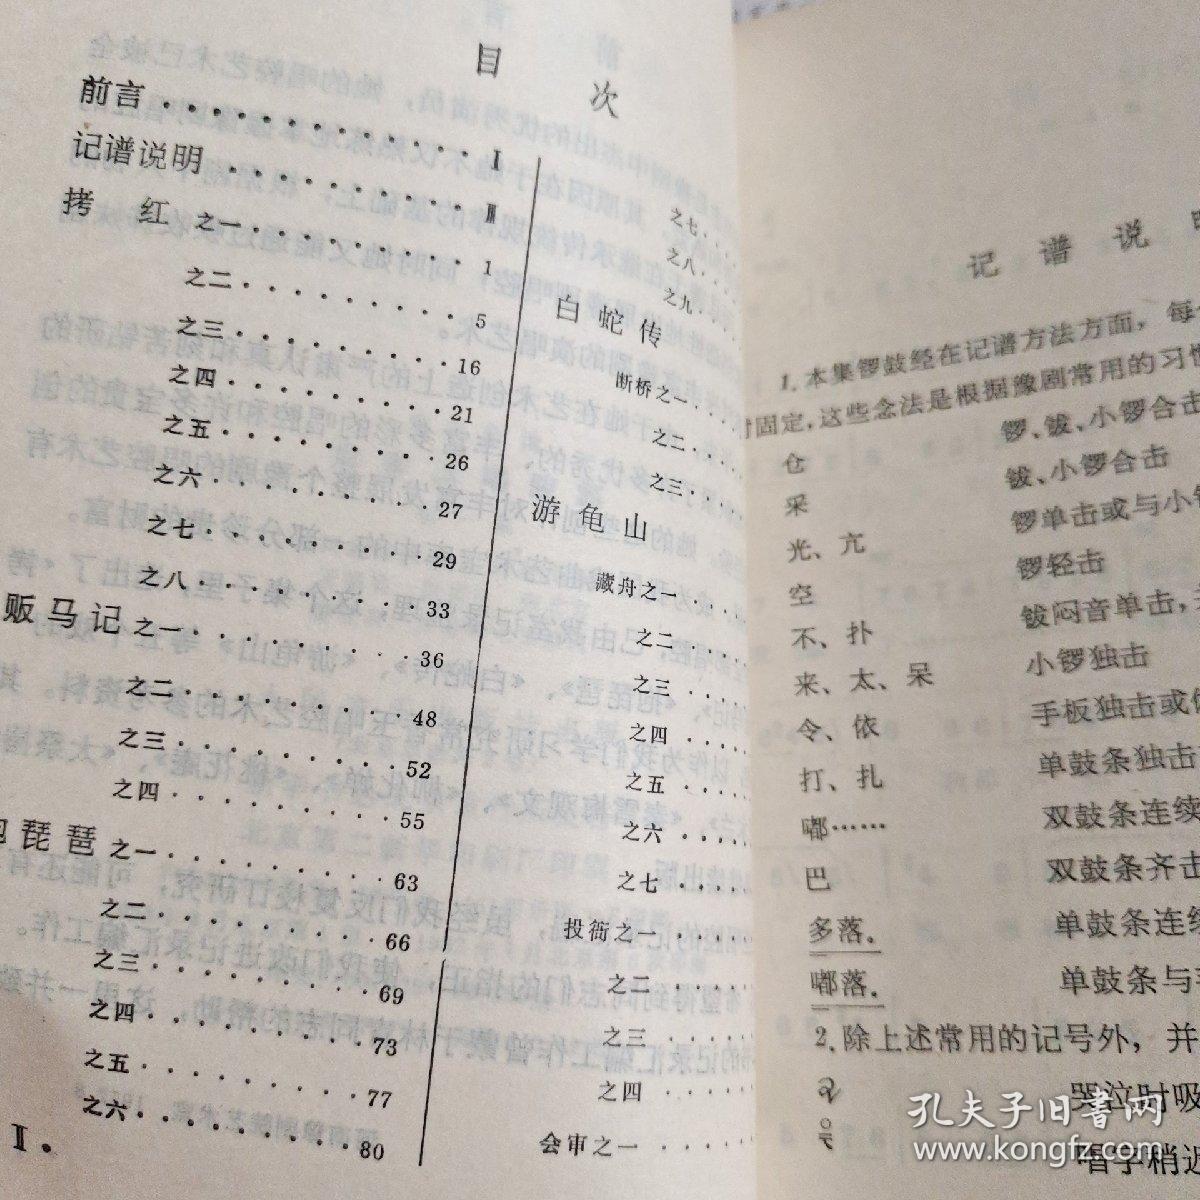 目 次
前言 ············ Ⅰ
记谱说明 ·········· Ⅲ
拷 红 之一 ········ 1
之二 ········ 5
之三 ········ 16
之四 ········ 21
之五 ········ 26
之六 ········ 27
之七 ········ 29
之八 ········ 33
贩马记 之一 ········ 36
之二 ········ 48
之三 ········ 52
之四 ········ 55
琵琶 之一 ········ 63
之二 ········ 66
之三 ········ 69
之四 ········ 73
之五 ········ 77
之六 ········ 80
Ⅱ.
之七 ···
之八 ···
之九 ···
白蛇传
断桥之一 ···
之二 ···
之三 ···
游龟山
藏舟之一 ···
之二 ···
之三 ···
之四 ···
之五 ···
之六 ···
之七 ···
投衙之一 ···
之二 ···
之三 ···
之四 ···
会审之一 ···
记谱说
1.本集锣鼓经在记谱方法方面，每
固定，这些念法是根据豫剧常用的习
仓 锣、钹、小锣合击
采 钹、小锣合击
光、亢 锣单击或与小
空 锣轻击
不、扑 钹闷音单击，
来、太、呆 小锣独击
令、依 手板独击或
打、扎 单鼓条独击
嘟…… 双鼓条连续
巴 双鼓条齐击
多落. 单鼓条连
嘟落. 单鼓条与
2.除上述常用的记号外，并
哭泣时吸
唱字稍迟
孔夫子旧书网
www.kongfz.com